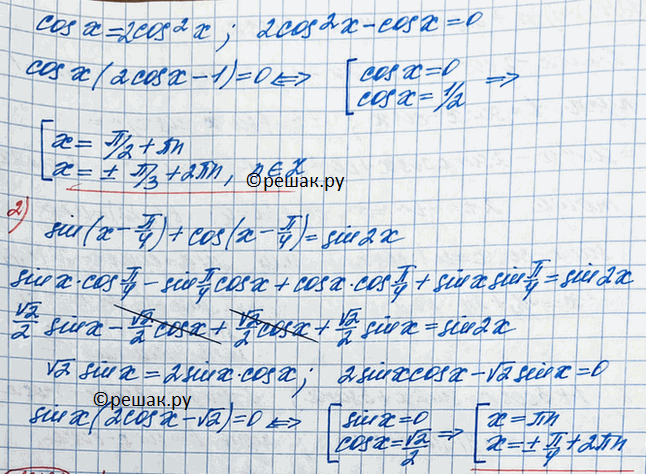 cos x = 2cos²x ; 2cos²x - cos x = 0
cos x (2cos x - 1) = 0 <=> [ cos x = 0
cos x = 1/2 =>
[ x = π/2 + πn
x = ± π/3 + 2πn, n ∈ Z
©решак.ру
2)
sin(x - π/4) + cos(x - π/4) = sin 2x
sin x · cos π/4 - sin π/4 cos x + cos x · cos π/4 + sin x sin π/4 = sin 2x
√2/2 sin x - √2/2 cos x + √2/2 cos x + √2/2 sin x = sin 2x
√2 sin x = 2 sin x · cos x ; 2 sin x cos x - √2 sin x = 0
©решак.ру
sin x (2cos x - √2) = 0 <=> [ sin x = 0 => [ x = πn
cos x = √2/2 x = ± π/4 + 2πn